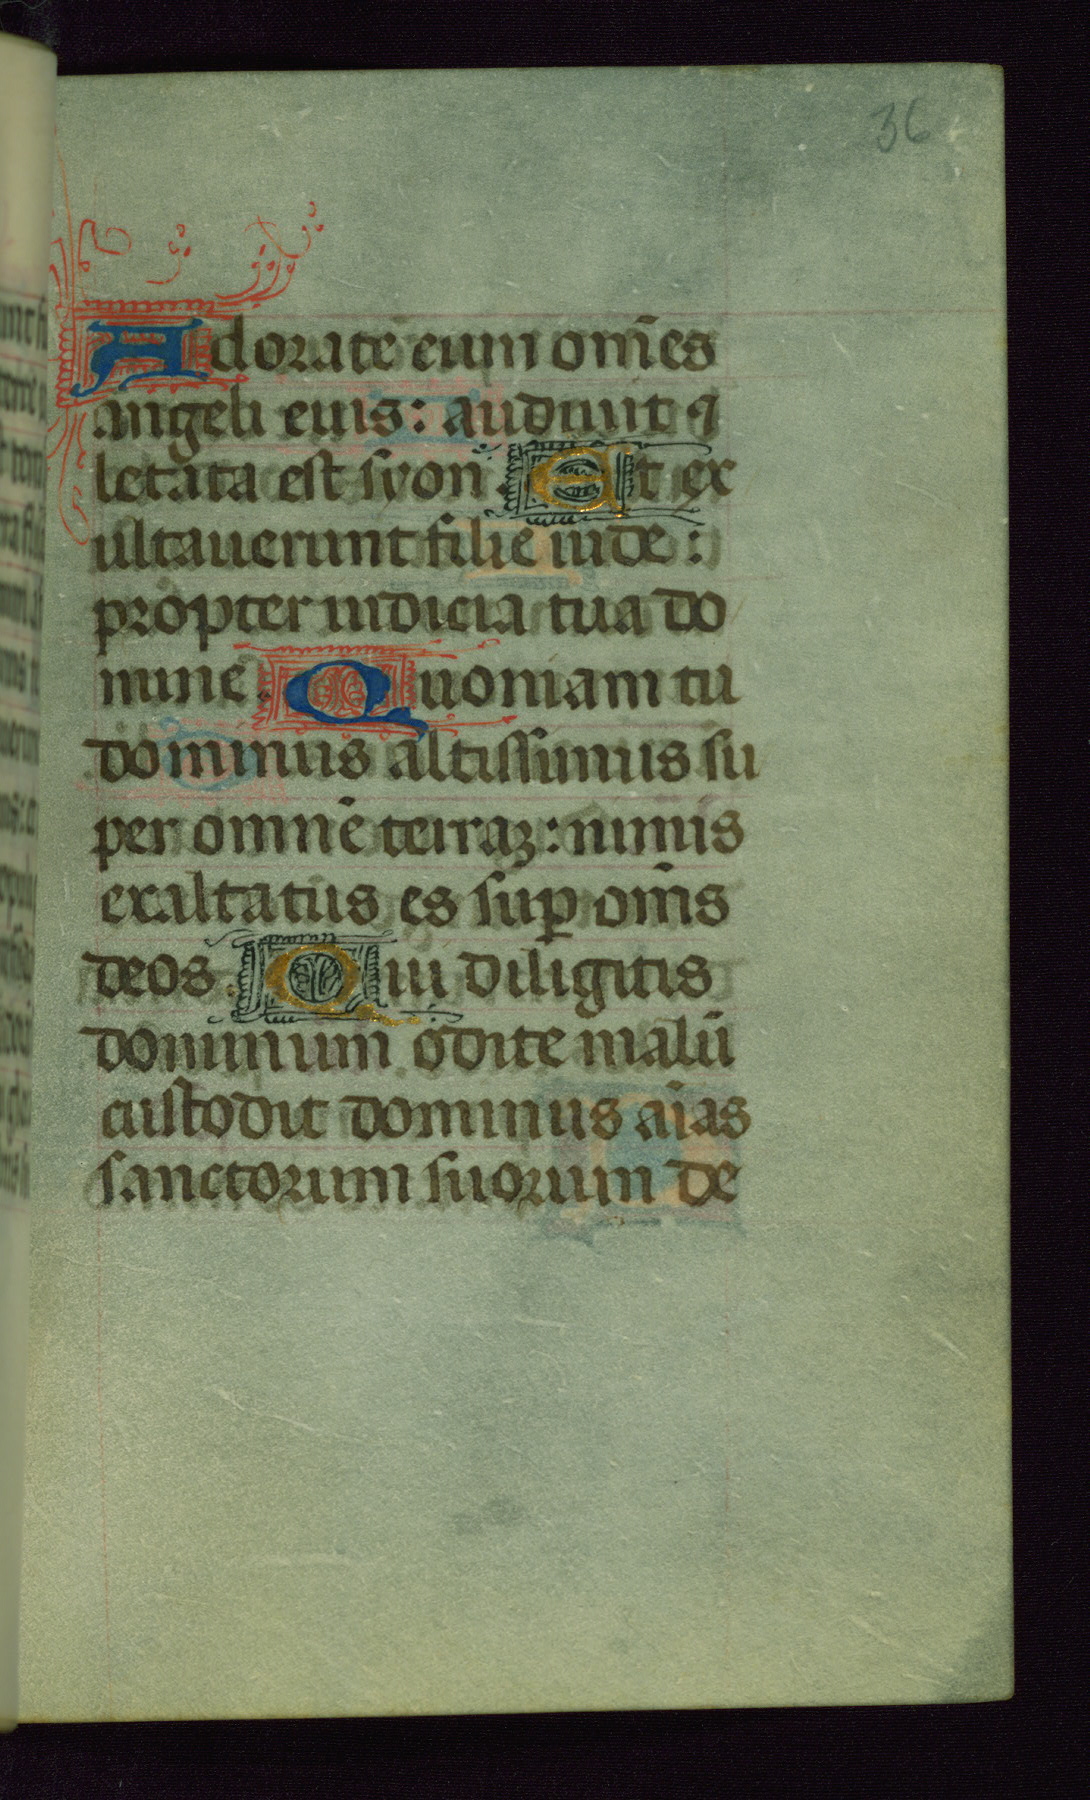 36
Adorate eum om̄es
angeli eius: audiuit ⁊
letata est syon. Et ex
ultauerunt filie iude:
propter iudicia tua do
mine. Quoniam tu
dominus altissimus su
per omnē terraꝫ: nimis
exaltatus es suꝑ om̄s
deos. Qui diligitis
dominum odite malū
custodit dominus aīas
sanctorum suorum de